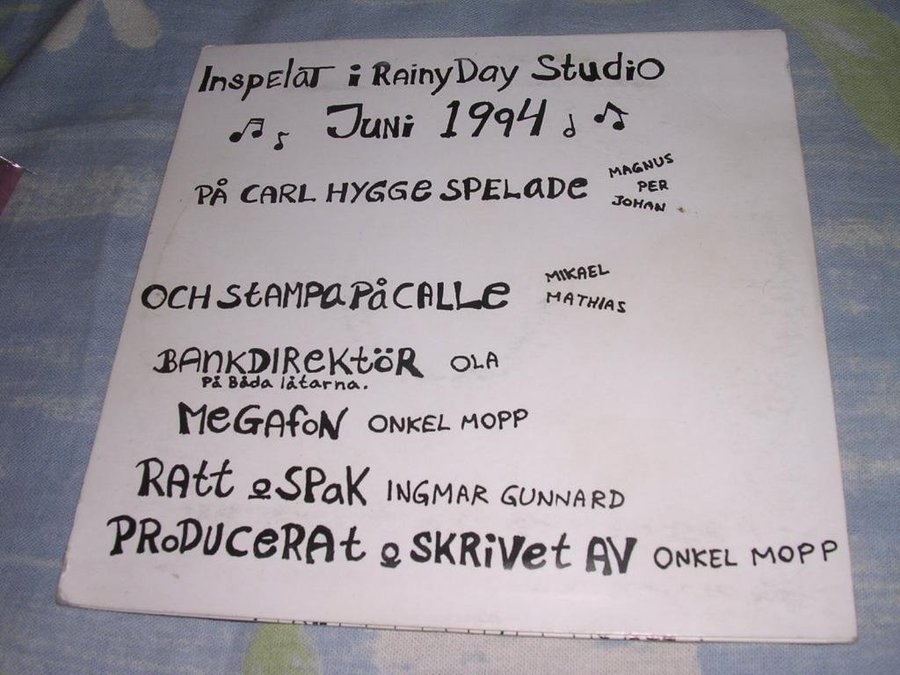 InspelaT i RainyDay Studio
Juni 1994
PÅ CARL HYGGe SPELaDe MAGNUS
PER
JOHAN
OCH StAMPaPåCALLe MIKAEL
MATHIAS
BAnKDIReKtöR OLA
På Båda låtarna.
MeGAfoN ONKEL MOPP
RAtt o SPaK INGMAR GUNNARD
PRoDUCeRAt o SKRiVet AV ONKEL MOPP